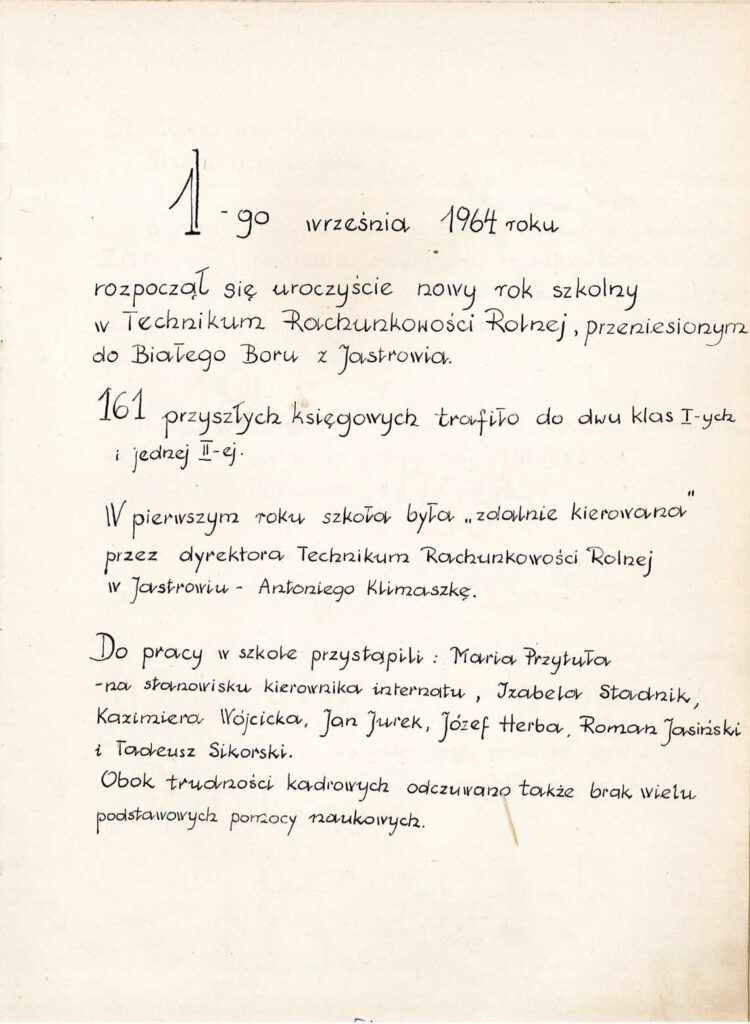 1-go września 1964 roku
rozpoczął się uroczyście nowy rok szkolny
w Technikum Rachunkowości Rolnej, przeniesionym
do Białego Boru z Jastrowia.
161 przyszłych księgowych trafiło do dwu klas I-ych
i jednej II-ej.
W pierwszym roku szkoła była „zdalnie kierowana”
przez dyrektora Technikum Rachunkowości Rolnej
w Jastrowiu - Antoniego Klimaszkę.
Do pracy w szkole przystąpili: Maria Przytuła
-na stanowisku kierownika internatu, Izabela Stadnik,
Kazimiera Wójcicka, Jan Jurek, Józef Herba, Roman Jasiński
i Tadeusz Sikorski.
Obok trudności kadrowych odczuwano także brak wielu
podstawowych pomocy naukowych.